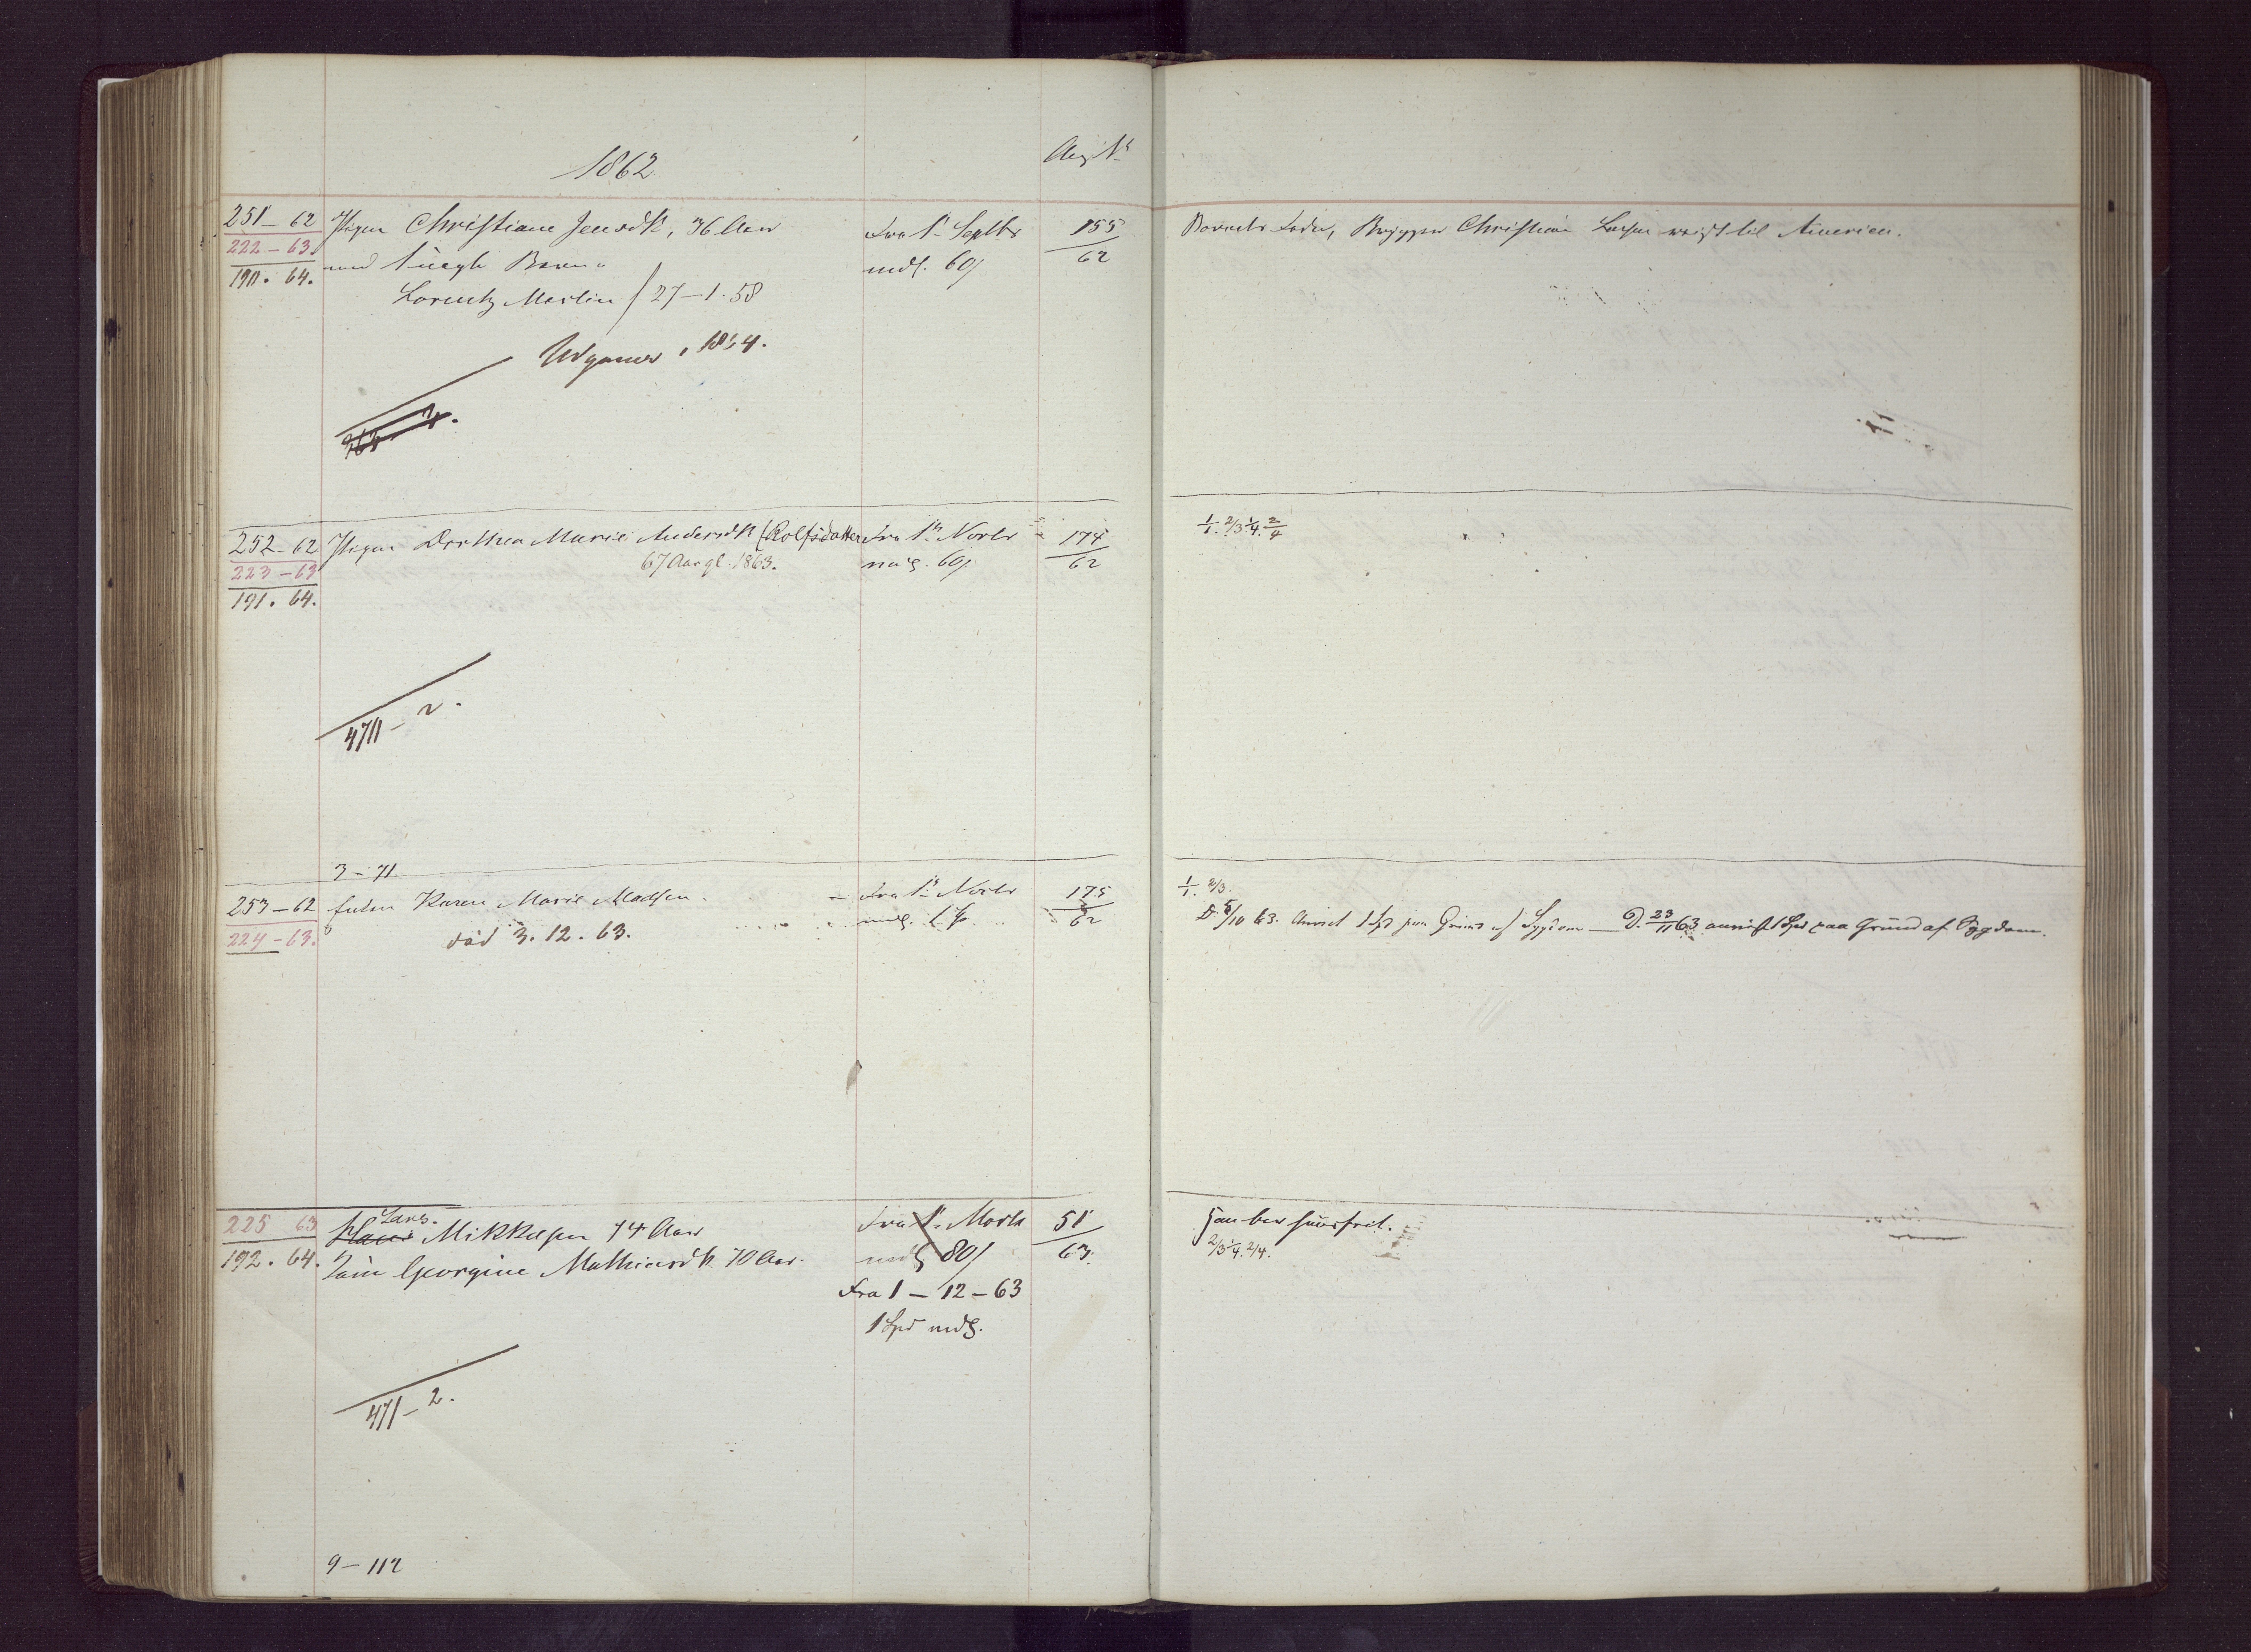 1862
251 - 62
222 - 63.
190. 64.
Pigen Christiane Jensdtr, 36 Aar
med 1 uægte Barn
Lorentz Martin f 27 - 1. 58
Udgaaer 1864.
Fra 1ste Septbr
mdl. 60
155
62
Barnets Fader, Brygger Christian Larsen reist til America.
252 - 62
223 - 63
191. 64.
Pigen Dorthea Marie Andersdtr (Rolfsdatter
67 Aar gl. 1863.
Fra 1ste Novbr
60
174
62
1/1. 2/3 1/4. 2/4
471 - 2.
3 - 71.
253 - 62
224 - 63.
Enken Karen Marie Madsen.
død 3. 12. 63.
Fra 1ste Novbr
175
62
1/1. 2/3.
D. 5/10 63. Anvist 1 Spd paa Grund af Sygdom — D. 23/11 63 anvist 1 Spd paa Grund af Sygdom.
225 63
192. 64.
Lars.
Hans Mikkelsen 74 Aar
Georgine Mathiasdtr. 70 Aar.
Fra 1ste Marts
mdl 80
Fra 1 - 12 - 63
1 Spd mdl.
51
63.
2/3 1/4. 2/4.
471 - 2.
9 - 112